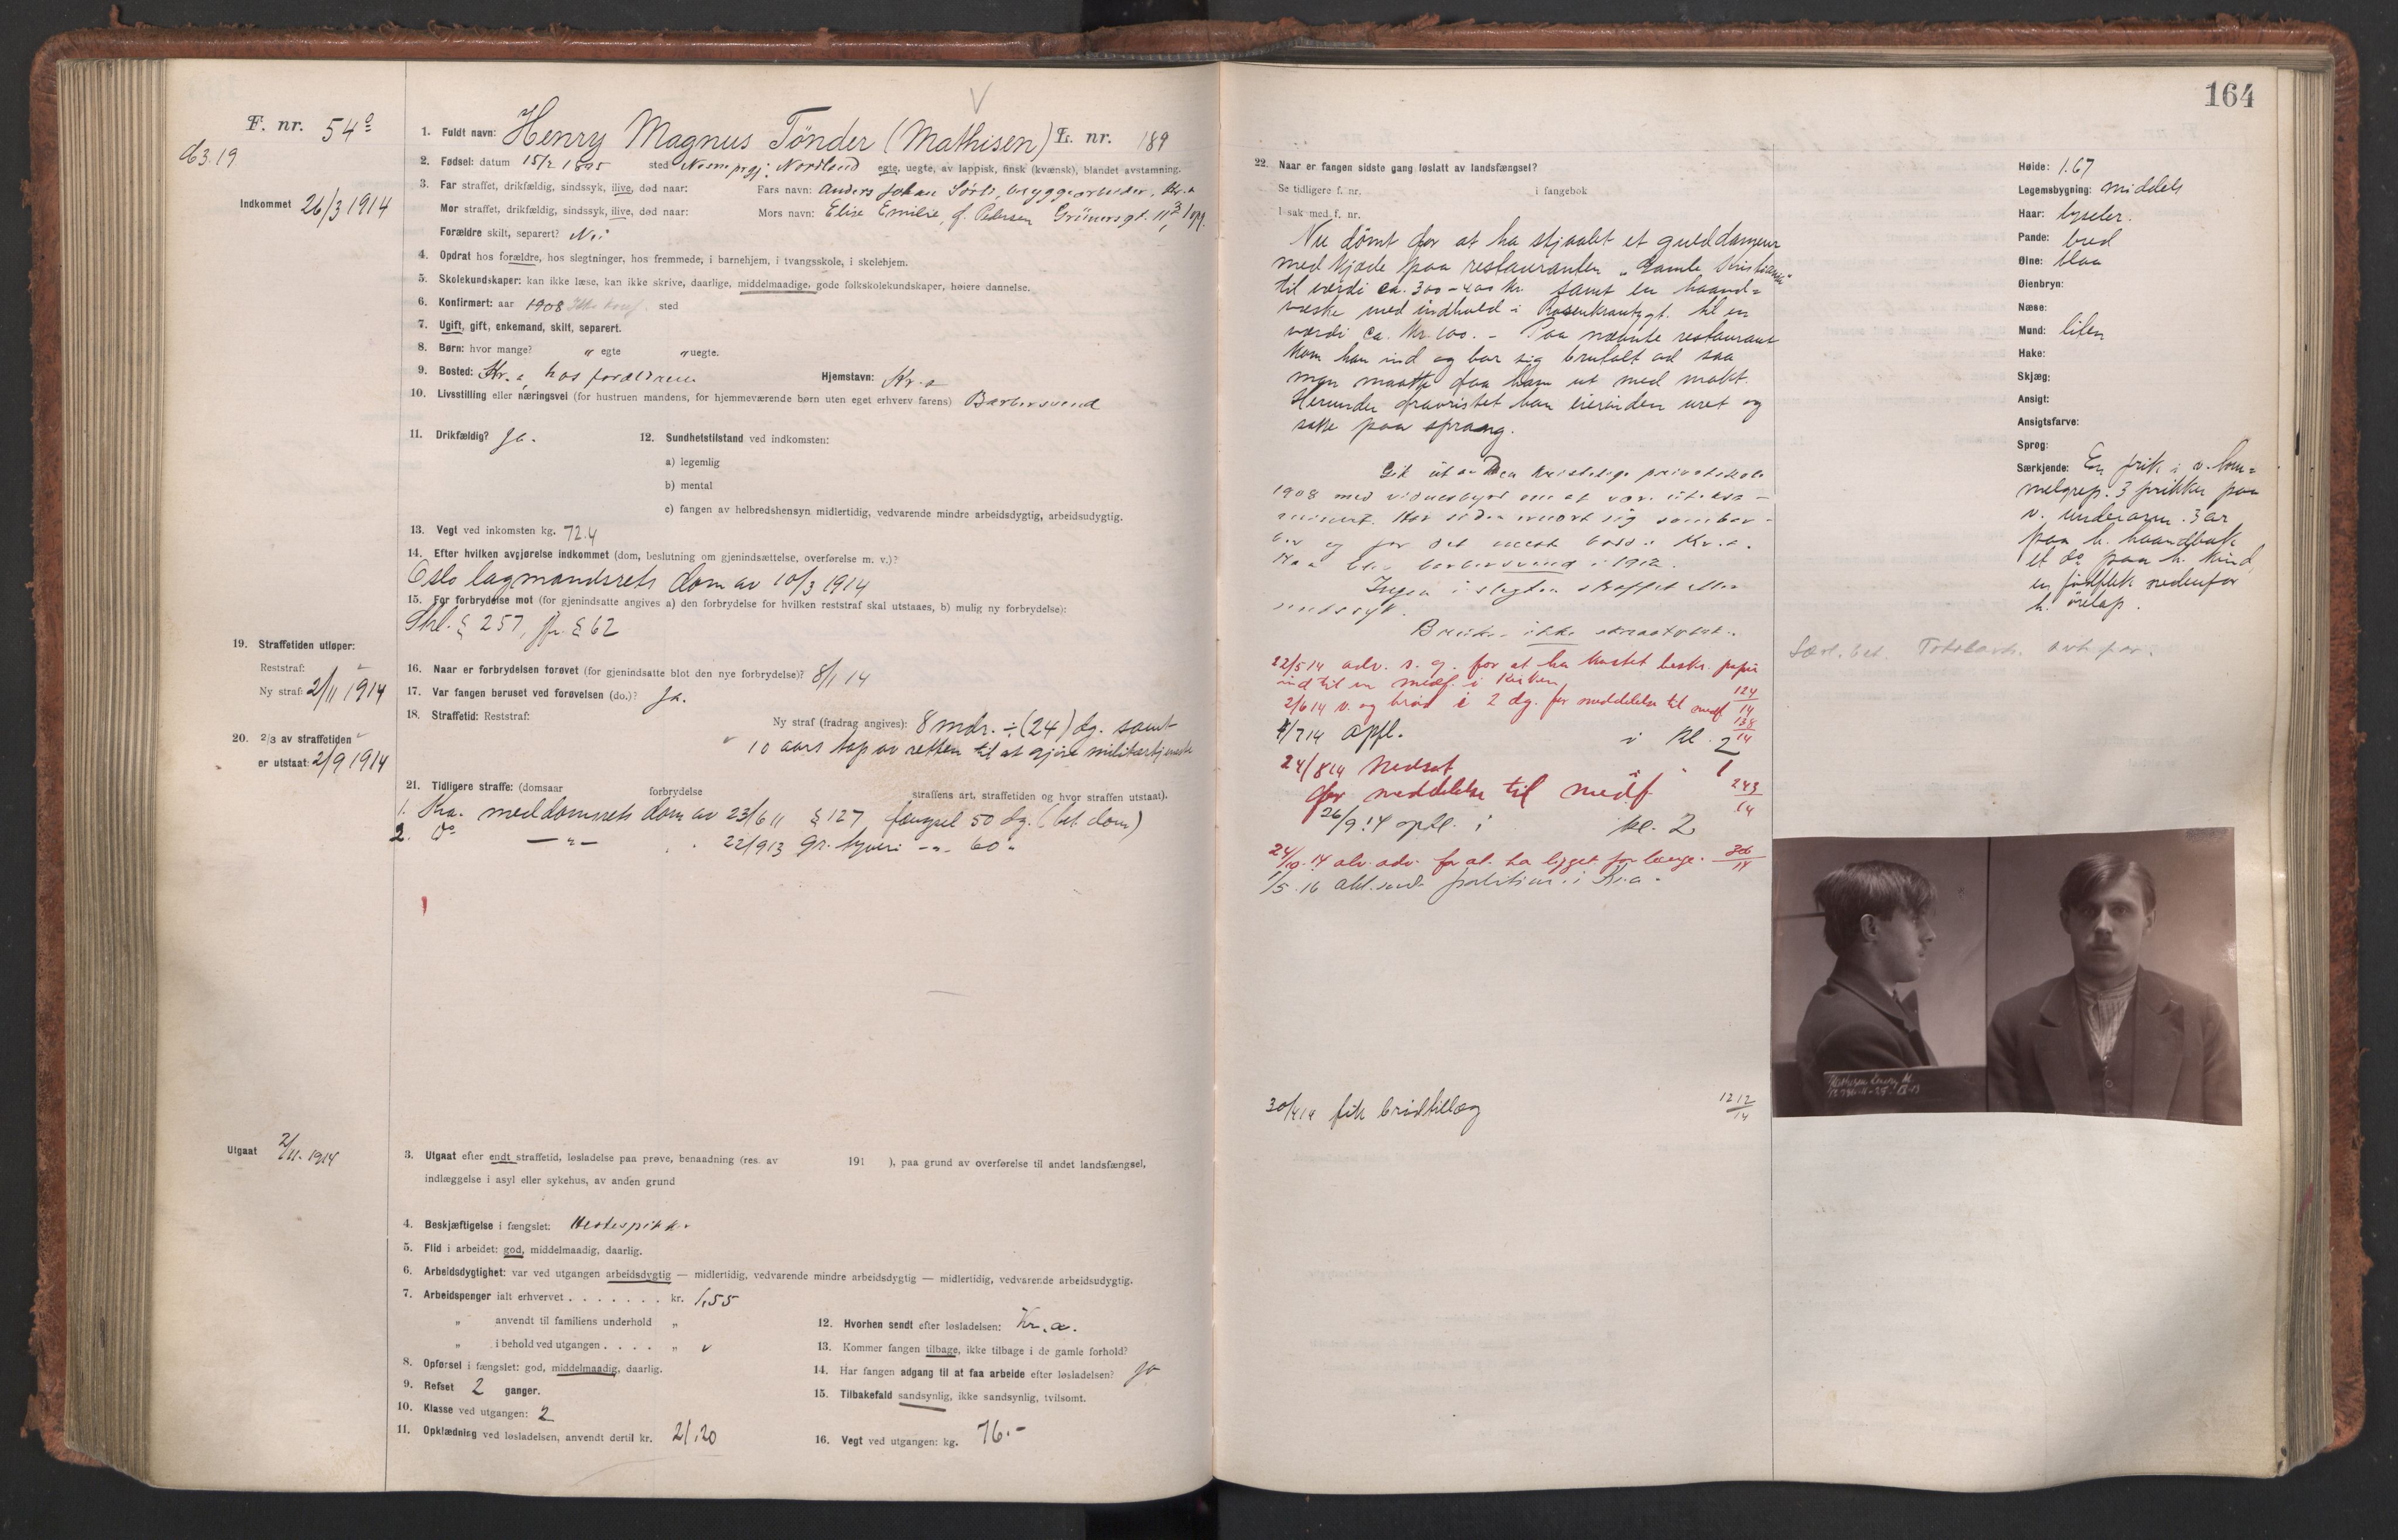 F. nr. 54
63.19
Indkommet 26/3 1914
1. Fuldt navn: Henry Magnus Tönder (Mathisen) L. nr. 189
2. Fødsel: datum 15/2 1895 sted Nesne prgj. Nordland egte, uegte, av lappisk, finsk (kvænsk), blandet avstamning.
3. Far straffet, drikfældig, sindssyk, ilive, død naar: Fars navn: Anders Johan bryggearbeider, Kr.a
Mor straffet, drikfældig, sindssyk, ilive, død naar: Mors navn: Elise Emilie, f. Pedersen Grünersgt. 11
Forældre skilt, separert? Nei
4. Opdrat hos forældre, hos slegtninger, hos fremmede, i barnehjem, i tvangsskole, i skolehjem.
5. Skolekundskaper: kan ikke læse, kan ikke skrive, daarlige, middelmaadige, gode folkskolekundskaper, høiere dannelse.
6. Konfirmert: aar 1908 Ikke konf. sted
7. Ugift, gift, enkemand, skilt, separert.
8. Børn: hvor mange? " egte " uegte.
9. Bosted: Kr.a, hos forældrene Hjemstavn: Kr.a
10. Livsstilling eller næringsvei (for hustruen mandens, for hjemmeværende børn uten eget erhverv farens) Barbersvend
11. Drikfældig? Ja. 12. Sundhetstilstand ved indkomsten:
a) legemlig
b) mental
c) fangen av helbredshensyn midlertidig, vedvarende mindre arbeidsdygtig, arbeidsudygtig.
13. Vegt ved inkomsten kg. 72.4
14. Efter hvilken avgjørelse indkommet (dom, beslutning om gjenindsættelse, overførelse m. v.)?
Oslo lagmandsrets dom av 10/3 1914
15. For forbrydelse mot (for gjenindsatte angives a) den forbrydelse for hvilken reststraf skal utstaaes, b) mulig ny forbrydelse):
Strl. § 257, jfr. § 62
19. Straffetiden utløper:
Reststraf:
Ny straf: 2/11 1914
16. Naar er forbrydelsen forøvet (for gjenindsatte blot den nye forbrydelse)? 8/1 14
17. Var fangen beruset ved forøvelsen (do.)? Ja.
18. Straffetid: Reststraf: Ny straf (fradrag angives): 8 mdr. ÷ (24) dg. samt
10 aars tap av retten til at gjøre militærtjeneste
20. 2/3 av straffetiden
er utstaat: 2/9 1914
21. Tidligere straffe: (domsaar forbrydelse straffens art, straffetiden og hvor straffen utstaat).
1. Kra. meddomsrets dom av 23/6 11 § 127 fængsel 50 dg. (bet. dom)
2. Do — " — 22/9 13 gr. tyveri - " - 60 "
Utgaat 2/11. 1914
3. Utgaat efter endt straffetid, løsladelse paa prøve, benaadning (res. av 191 ), paa grund av overførelse til andet landsfængsel,
indlæggelse i asyl eller sykehus, av anden grund
4. Beskjæftigelse i fængslet: Hestespikker
5. Flid i arbeidet: god, middelmaadig, daarlig.
6. Arbeidsdygtighet: var ved utgangen arbeidsdygtig — midlertidig, vedvarende mindre arbeidsdygtig — midlertidig, vedvarende arbeidsudygtig.
7. Arbeidspenger ialt erhvervet . . . . . . . kr. 1,55
" anvendt til familiens underhold "
" i behold ved utgangen . . . . "
8. Opførsel i fængslet: god, middelmaadig, daarlig.
9. Refset 2 ganger.
10. Klasse ved utgangen: 2
11. Opklædning ved løsladelsen, anvendt dertil kr. 21,20
12. Hvorhen sendt efter løsladelsen: Kr.a.
13. Kommer fangen tilbage, ikke tilbage i de gamle forhold?
14. Har fangen adgang til at faa arbeide efter løsladelsen? Ja
15. Tilbakefald sandsynlig, ikke sandsynlig, tvilsomt.
16. Vegt ved utgangen: kg. 76.-
164
22. Naar er fangen sidste gang løslatt av landsfængsel?
Se tidligere f. nr. i fangebok
I sak med f. nr.
Nu dömt for at ha stjaalet et gulddameur
med kjæde paa restauranten "Gamle Kristiania"
til værdi ca. 300-400 kr. samt en haand-
væske med indhold i Rosenkrantzgt. til en
værdi ca. kr. 100. - Paa nævnte restaurant
kom han ind og bar sig brutalt ad saa
man maatte faa ham ut med makt.
Herunder fravristet han eierinden uret og
satte paa sprang.
Gik ut av Den kristelige privatskole
1908 med vidnesbyrd om at være uteksa-
minert. Har siden ernært sig som bar-
ber og for det meste bodd i Kr.a.
Han blev barbersvend i 1912.
Ingen i slegten straffet eller
sindssyk.
Bruker ikke skraatobak.
22/5 14 adv. s. g. for at ha kastet beskr. papir
ind til en medf. i kirken 124/14
2/6 14 v. og brød i 2 dg. for meddelelse til medf 138/14
1/7 14 opfl. i kl. 2
24/8 14 Nedsat " " 1
for meddelelse til medf 243/14
26/9 14 opfl. i kl. 2
24/10. 14 alv. adv. for at ha ligget for længe.
1/5. 16 akt. sendt politiet i Kr.a.
30/4 14 fik brödtillæg 1212/14
Høide: 1.67
Legemsbygning: middels
Haar: lyseler.
Pande: bred
Øine: blaa
Øienbryn:
Næse:
Mund: liten
Hake:
Skjæg:
Ansigt:
Ansigtsfarve:
Sprog:
Særkjende: En prik i v. tom-
melgrep. 3 prikker paa
v. underarm. 3 ar
paa h. haandbak
et do paa h. kind,
en födflek nedenfor
h. örelap.